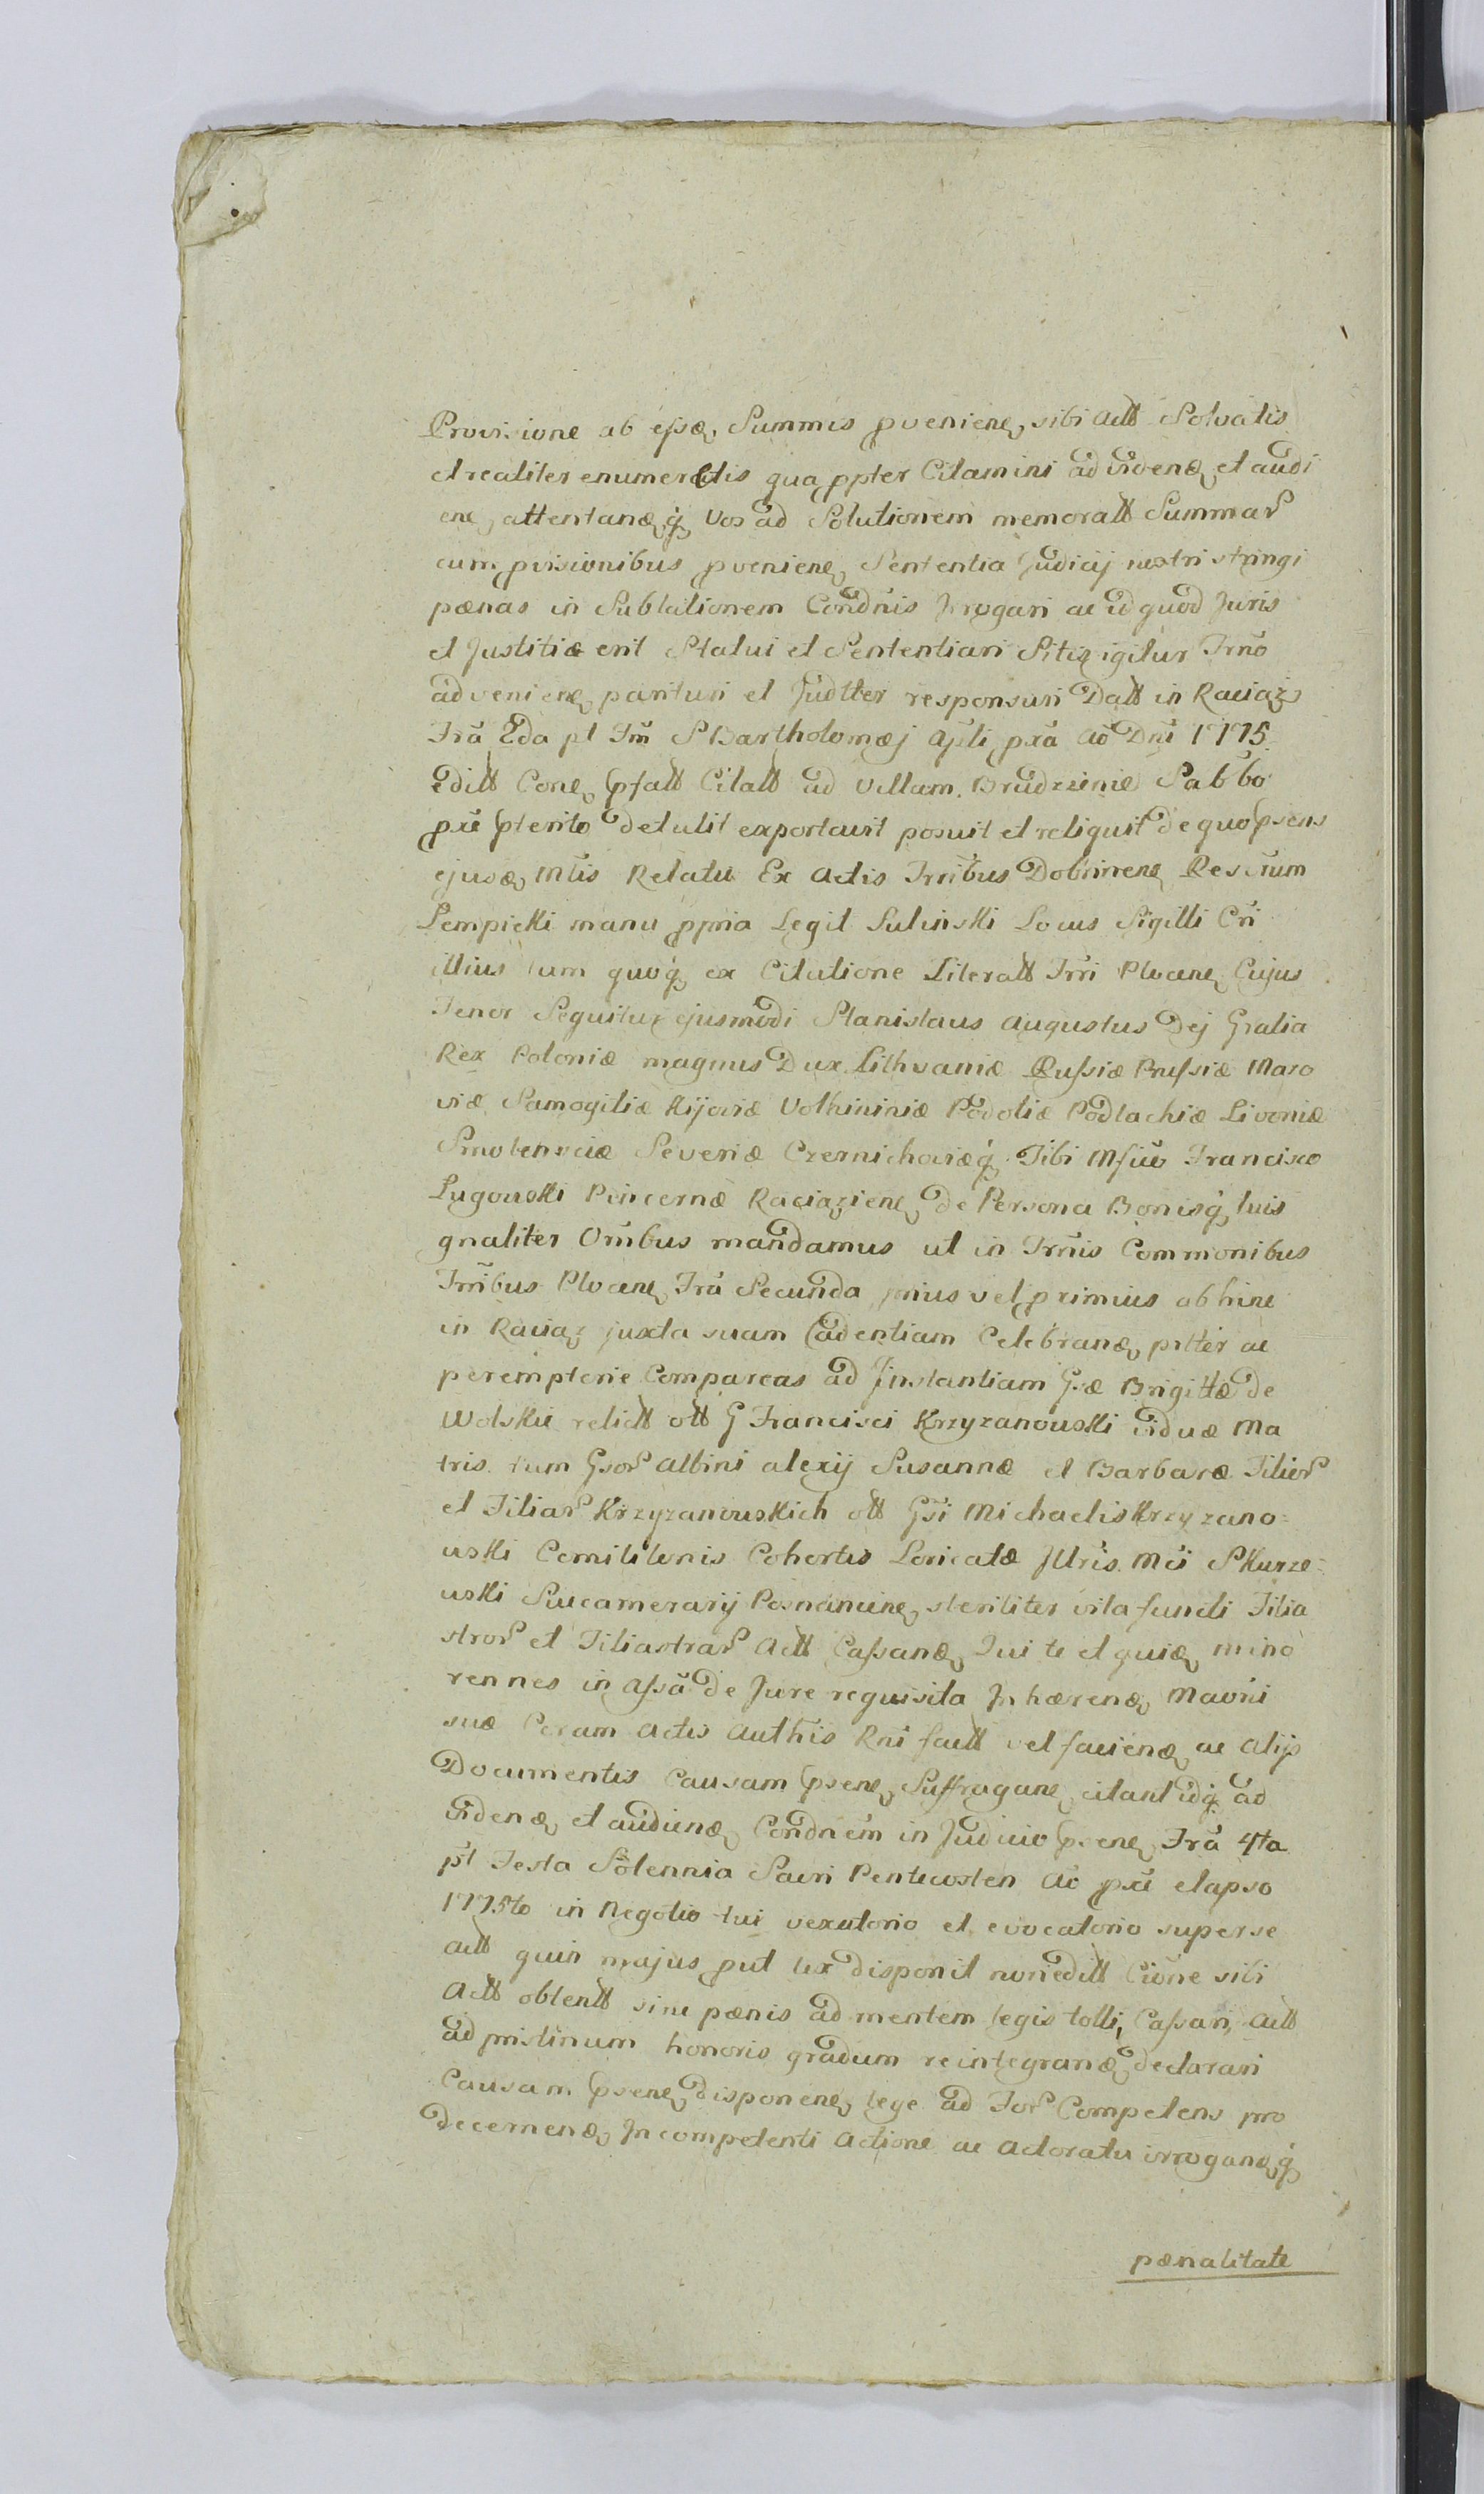 Provisione ab ejsq, Summis pveniene, sibi Actt Solvatis
et realiter enumeretis qua ppter Citamini ad videnq, et audi
ene, attentanq,q, Vos ad Solutionem memoratt Summar
cum pvisionibus pveniene, Sententia Judicij nostri stringi
pænas in Sublationem Condnis Irrogari ac id quod Juris
et Justitiæ erit Statui et Sententiari Sitis igitur Trno
adveniene, parituri et Judtter responsuri Datt in Raciąż
Fra 2da pt Fm S Bartholomæj Apli pxa Ao Dni 1775
editt Cone, psatt Citatt ad Villam Brudzenie Sabbo
pxe pterito detulit exportavit posuit et reliquit de quo psens
ejusq, Mtis Relatu Ex Actis Trribus Dobrinene, Rescrum
Lempicki manu ppria Legit Sulinski Locus Sigilli Cri
illius tum quoq, ex Citatione Literatt Trri Plocene, Cujus
Tenor Sequitur ejusmodi Stanislaus Augustus Dej Gratia
Rex Poloniæ magnus Dux Lithvaniæ Russiæ Prussiæ Mazo
viæ Samogitiæ Kijoviæ Volhininiæ Podoliæ Podlachiæ Livoniæ
Smolensciæ Severiæ Czernichoviæq, Tibi Mfico Francisco
Lugowski Pincernæ Raciąziene, de Persona Bonisq, tuis
gnaliter Ombus mandamus ut in Trnis Commonibus
Trribus Plocene, Fra Secunda prius vel primius abhinc
in Raciąz juxta suam Cadentiam Celebranq, pltter ac
peremptorie Compareas ad Jnstantiam Gsæ Brigittæ de
Wolskie relictt ott G Francisci Krzyzanowski viduæ Ma
tris tum Gsor Albini Alexij Susannæ et Barbaræ Filior
et Filiar Krzyzanowskich ott Gsi Michaelis Krzyzano=
wski Comilitonis Cohortis Loricatæ Jllris Mci Skurze=
wski Succamerarij Posnaniene, steriliter vita functi Filia
stror et Filiastrar Actt Cassanq, Qui te et quiq, mino
rennes in Assa de Jure requisita Jnhærenq, Mavni
suæ Coram Actis Authis Rni factt vel facienq, ac Alijs
Documentis Causam psene, Suffragane, citant idq, ad
videnq, et audienq, Condnem in Judicio psene, Fra 4ta
pt Festa Solennia Sacri Pentecosten Ao pxe elapso
1775to in Negotio tui vexatorio et evocatorio super se
Actt quin majus put lex disponit non editt Cione sibi
Actt obtentt sine pænis ad mentem legis tolli, Cassari, Actt
ad pristinum honoris gradum reintegranq, declarari
Causam psene, disponene, lege ad For Competens pro
decernenq, Jncompetenti Actione ac Actoratu irroganq,q,
pænalitate